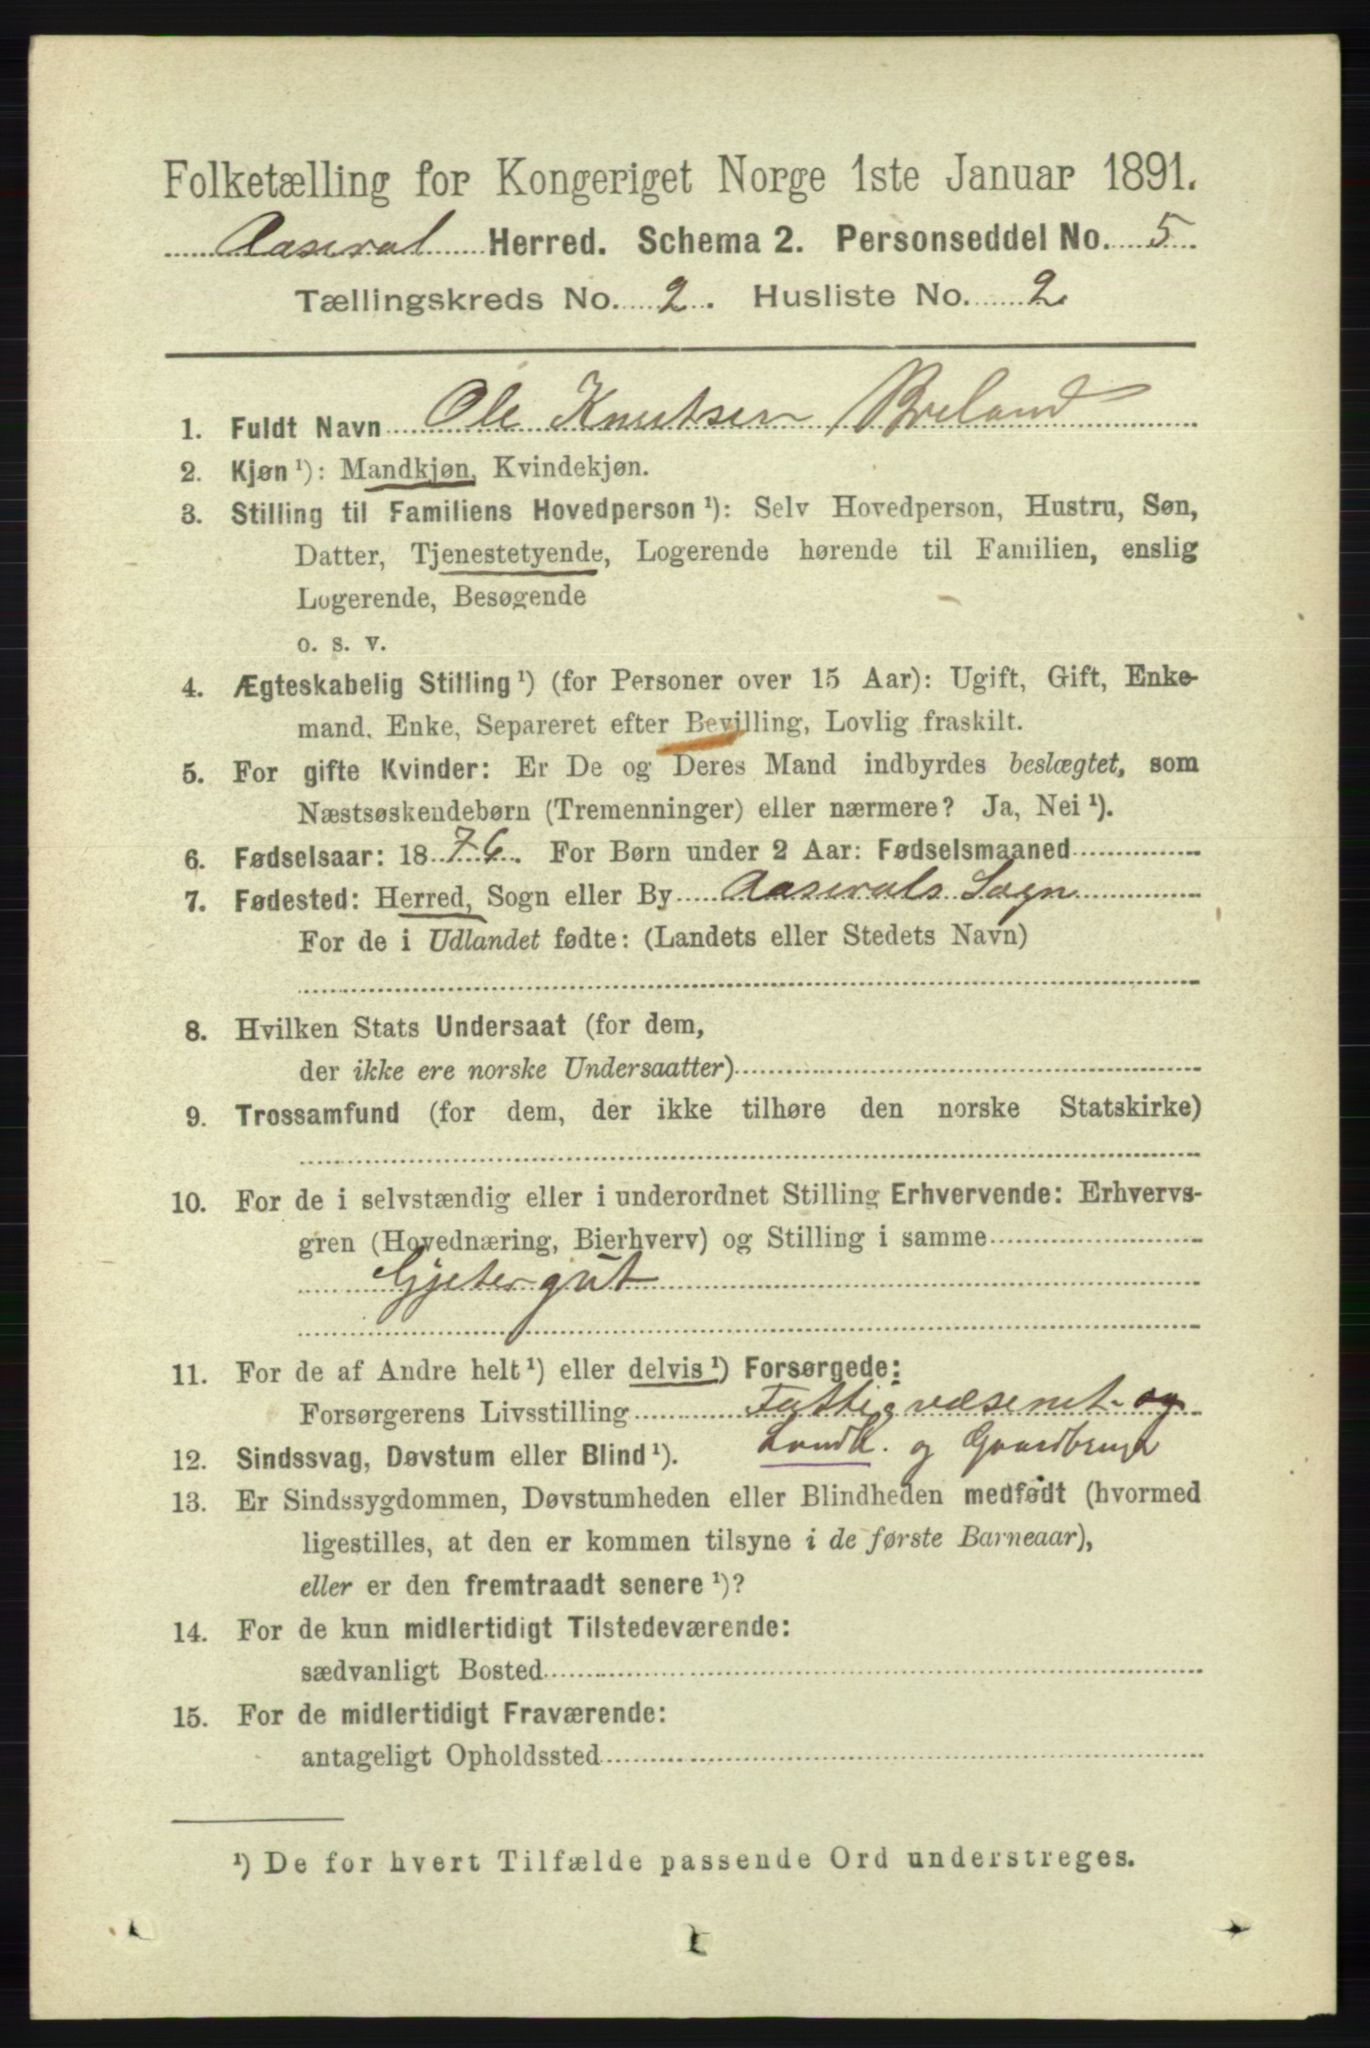 Folketælling for Kongeriget Norge 1ste Januar 1891.
Aaseral Herred. Schema 2. Personseddel No. 5
Tællingskreds No. 2. Husliste No. 2
1. Fuldt Navn Ole Knutsen Breland
2. Kjøn ¹): Mandkjøn, Kvindekjøn.
3. Stilling til Familiens Hovedperson ¹): Selv Hovedperson, Hustru, Søn,
Datter, Tjenestetyende, Logerende hørende til Familien, enslig
Logerende, Besøgende
o. s. v.
4. Ægteskabelig Stilling ¹) (for Personer over 15 Aar): Ugift, Gift, Enke-
mand, Enke, Separeret efter Bevilling, Lovlig fraskilt.
5. For gifte Kvinder: Er De og Deres Mand indbyrdes beslægtet, som
Næstsøskendebørn (Tremenninger) eller nærmere? Ja, Nei ¹).
6. Fødselsaar: 1876. For Børn under 2 Aar: Fødselsmaaned
7. Fødested: Herred, Sogn eller By Aaserals Sogn
For de i Udlandet fødte: (Landets eller Stedets Navn)
8. Hvilken Stats Undersaat (for dem,
der ikke ere norske Undersaatter)
9. Trossamfund (for dem, der ikke tilhøre den norske Statskirke)
10. For de i selvstændig eller i underordnet Stilling Erhvervende: Erhvervs-
gren (Hovednæring, Bierhverv) og Stilling i samme
Gjetergut
11. For de af Andre helt ¹) eller delvis ¹) Forsørgede:
Forsørgerens Livsstilling Fattigvæsenet og
12. Sindssvag, Døvstum eller Blind ¹). Landh. og Gaardbruge
13. Er Sindssygdommen, Døvstumheden eller Blindheden medfødt (hvormed
ligestilles, at den er kommen tilsyne i de første Barneaar),
eller er den fremtraadt senere ¹)?
14. For de kun midlertidigt Tilstedeværende:
sædvanligt Bosted
15. For de midlertidigt Fraværende:
antageligt Opholdssted
¹) De for hvert Tilfælde passende Ord understreges.